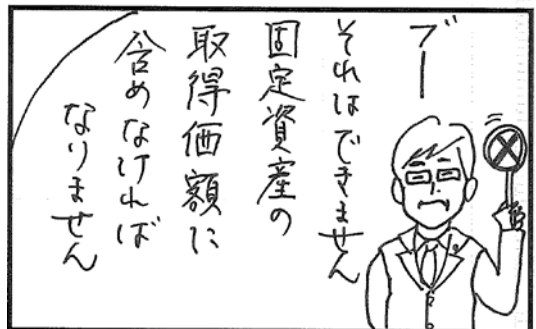 ブー
それはできません
固定資産の
取得価額に
含めなければ
なりません